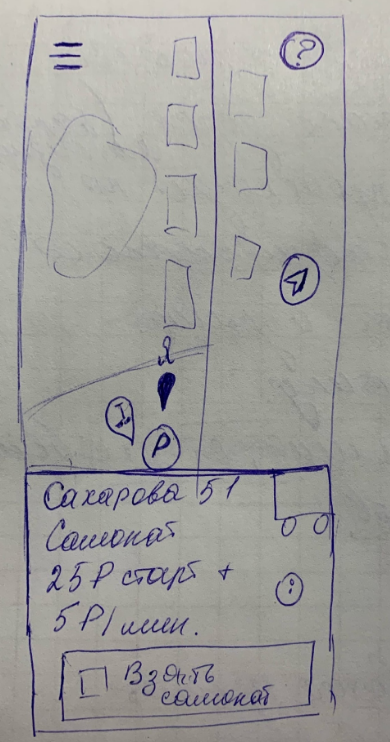 ?
Я
P
Сахарова 51
Самокат
25Р старт +
5Р/мин.
Взять
самокат